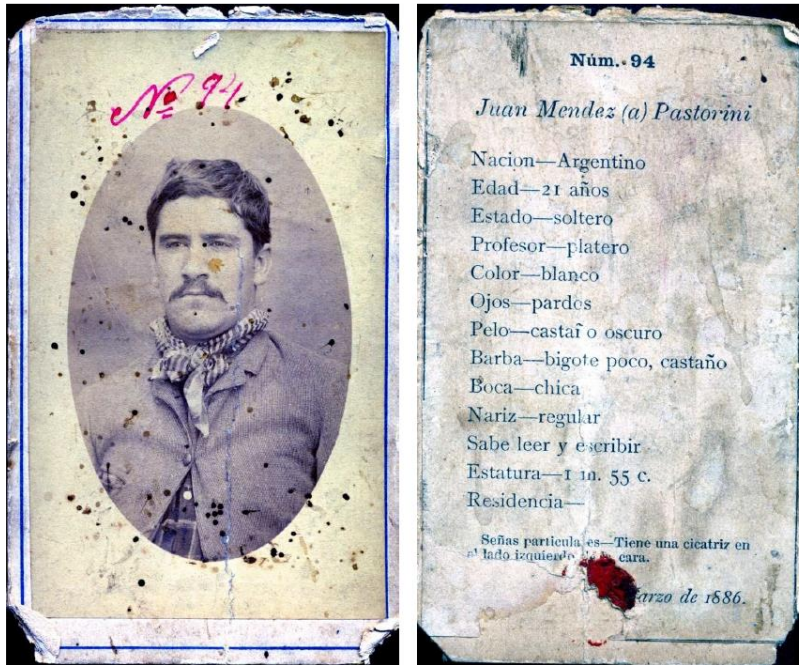 Nº 94
Núm. 94
Juan Mendez (a) Pastorini
Nacion—Argentino
Edad—21 años
Estado—soltero
Profesor—platero
Color—blanco
Ojos—pardos
Pelo—castaño oscuro
Barba—bigote poco, castaño
Boca—chica
Nariz—regular
Sabe leer y escribir
Estatura—1 m. 55 c.
Residencia—
Señas particulares—Tiene una cicatriz en
el lado izquierdo cara.
arzo de 1886.